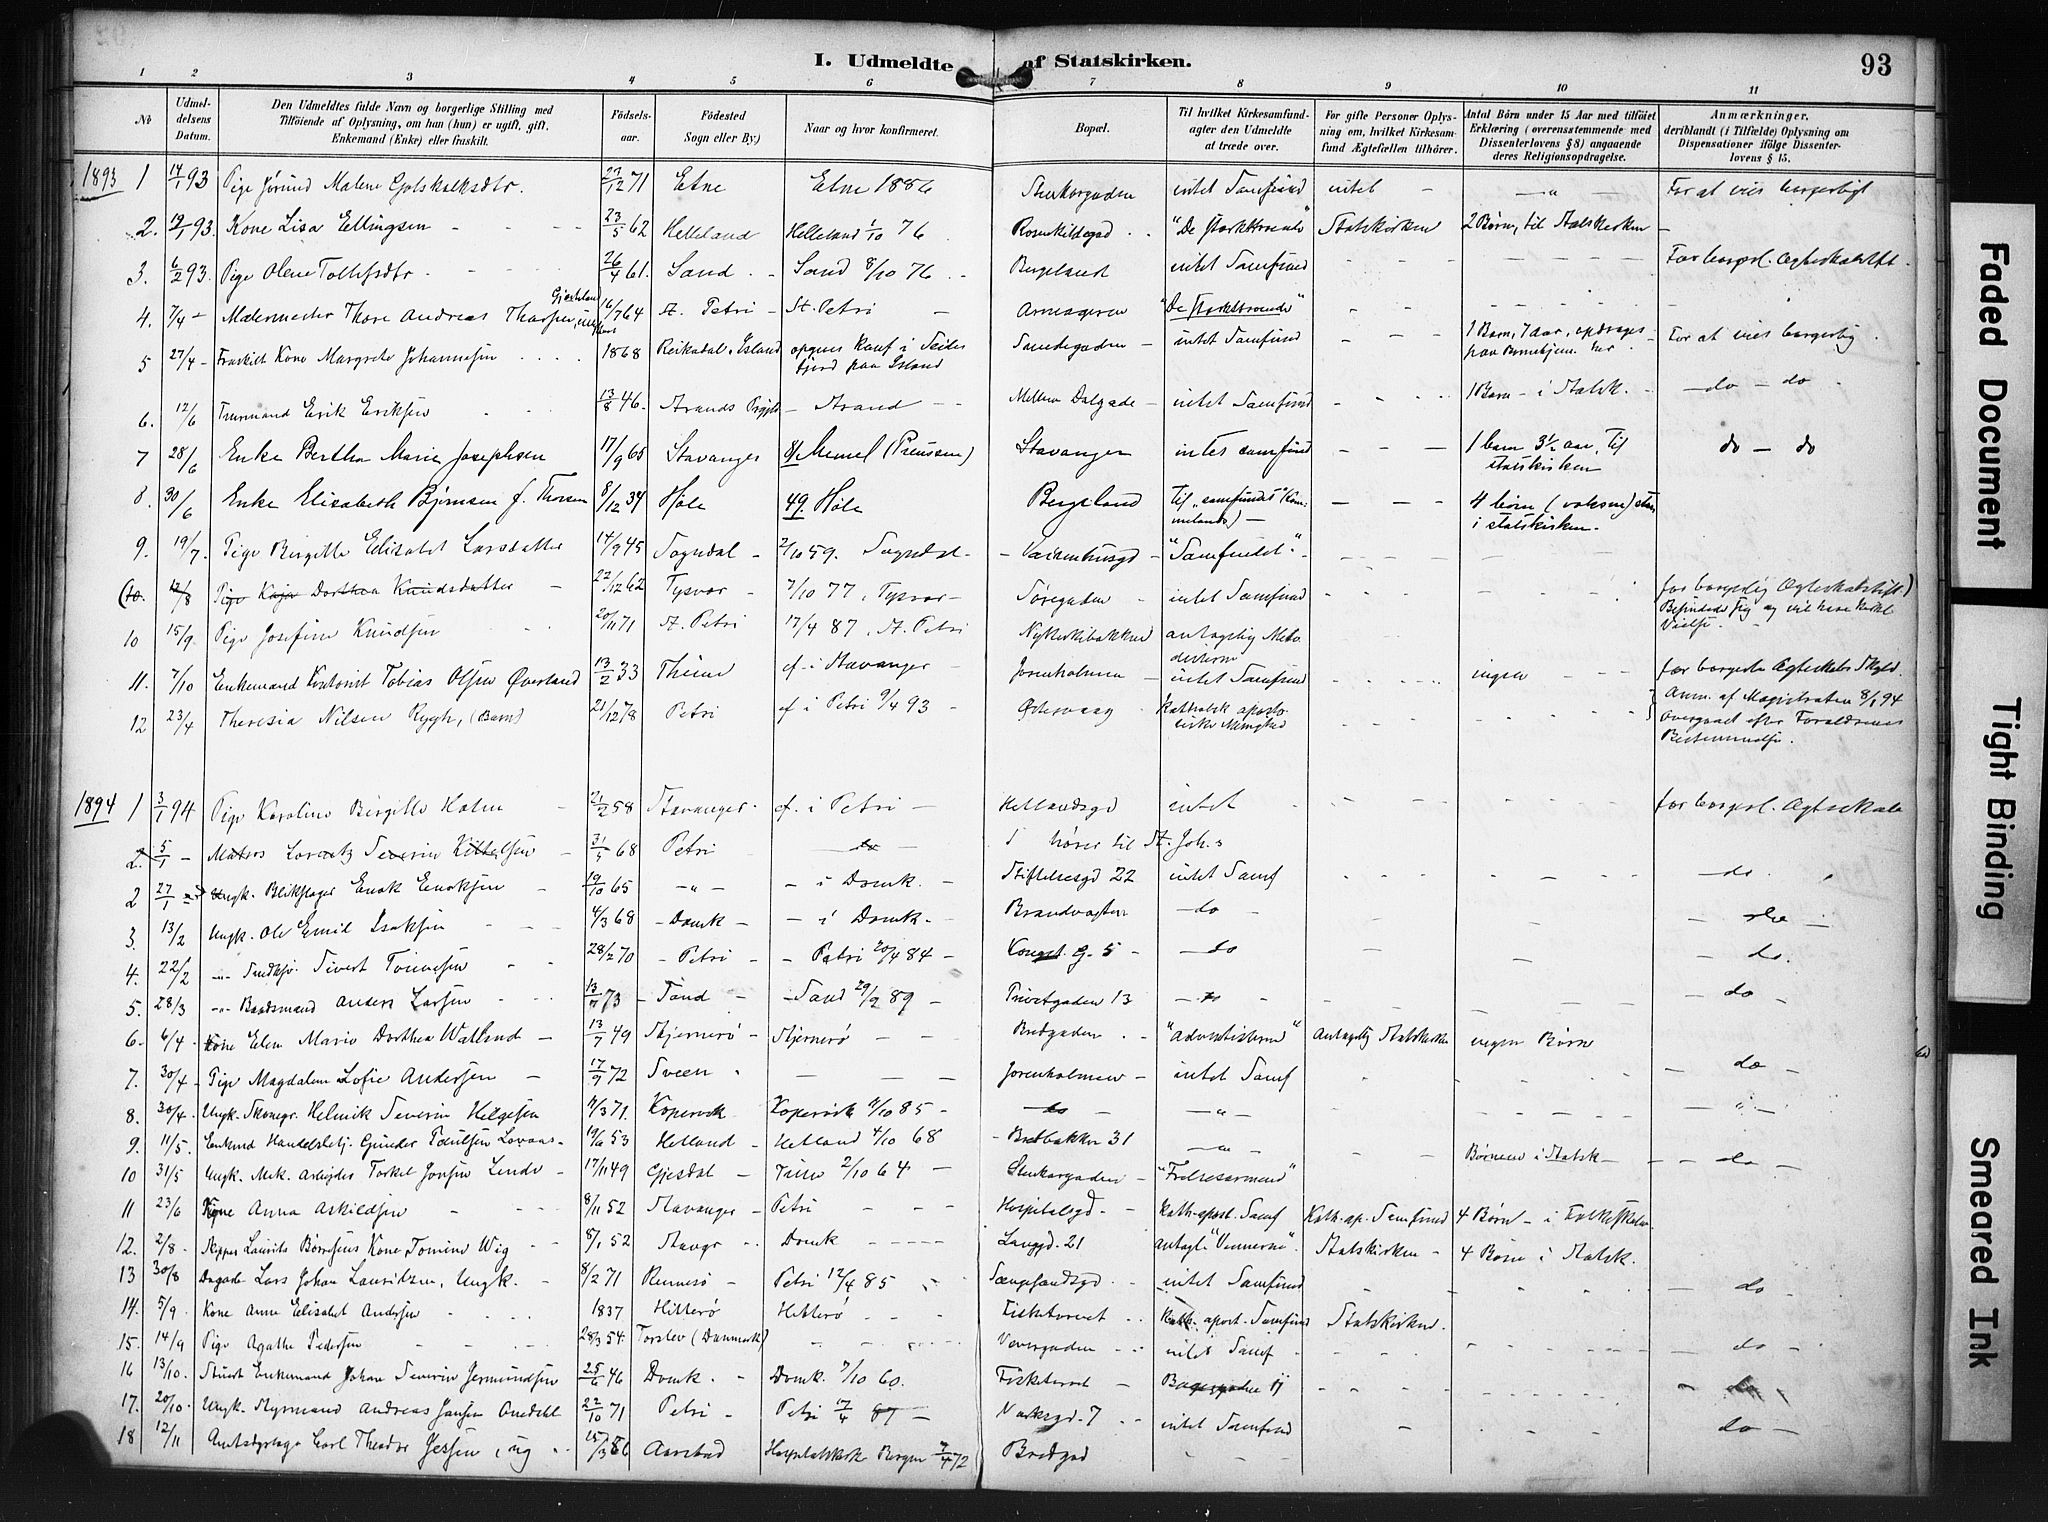 I. Udmeldte af Statskirken. 93
1 2 3 4 5 6 7 8 9 10 11
No Udmeldelsens Datum. Den Udmeldtes fulde Navn og borgerlige Stilling med Tilføiende af Oplysning, om han (hun) er ugift, gift, Enkemand (Enke) eller fraskilt. Fødselsaar. Fødested Sogn eller By.) Naar og hvor konfirmeret. Bopæl. Til hvilket Kirkesamfund agter den Udmeldte at træde over. For gifte Personer Oplysning om, hvilket Kirkesamfund Ægtefællen tilhører. Antal Børn under 15 Aar med tilføiet Erklæring (overensstemmende med Dissenterlovens § 8) angaaende deres Religionsopdragelse. Anmærkninger, deriblandt (i Tilfælde) Oplysning om Dispensationer ifølge Dissenterlovens § 15.
1893 1 14/1 93 Pige Jørund Malene Gotskalksdtr. 27/12 71 Etne Etne 1886 Stenkargaden intet Samfund intet - - " - For at vies borgerligt
2. 19/1 93. Kone Lisa Ellingsen 23/5 62 Helleland Helleland 1/10 76 Rosenkildegad "De stærkttroende" Statskirken 2 Børn, til Statskirken -
3. 6/2 93. Pige Olene Tollefsdtr. 26/4 61. Sand Sand 8/10 76 Bergeland intet Samfund For borgerl. Ægteskabstift.
4. 7/4 - Malermester Thore Andreas Thorsen Gjesteland, ugift 16/7 64 St. Petri St. Petri Arneageren "De stærkttroende"
5 27/4 - Fraskilt Kone Margrete Johannesen 1868 Reikadal, Island opgives konf. i Seidesfjord paa Island Sandegaden intet Samfund 1 Barn, 7 aar, opdrages paa Børnehjem her For at vies borgerlig
6. 12/6 Tømmermand Erik Eriksen 13/8 46. Strands Prgjld Strand Mellem Dalgade intet Samfund 1 Barn - i Statsk. - do - do
7 28/6 Enke Bertha Marie Josephsen 17/9 65 Stavanger Memel (Preussen) Stavanger intet samfund 1 barn 3½ aar, til statskirken do - do
8. 30/6 Enke Elisabeth Bjørnsen f. Thorsen 8/12 34 Høle 49. Høle Bergeland Til "samfundet" (Kommelands) - 4 børn (voksne) i statskirken.
9. 19/7. Pige Birgitte Elisabet Larsdatter 14/9 45 Sogndal 2/10 59. Sogndal Vaisenhusgd "Samfundet"
(10. 12/8 Pige Kaja Dorthea Knudsdatter 22/12 62 Tysvær 7/10 77, Tysvær Søregaden intet Samfund for borgerlig Ægteskabstift.) Befindede sig og vil have kirkel Vielse.
10 15/9. Pige Josefine Knudsen 20/11 71 St. Petri 17/4 87, St. Petri Nykirkebakken antagelig Metodisterne
11. 7/10 Enkemand Kontorist Tobias Olsen Øverland 13/2 33 Thime cf. i Stavanger Jorenholmen intet Samfund ingen for borgerlig Ægteskabs Skyld. Anm. af Magistraten 8/1 94
12 23/4 Theresia Nilsen Rygh, (Barn) 21/12 78 Petri cf. i Petri 9/4 93 - Østervaag Katholsk apostoliske Menighed Overgaaet efter Forældrenes Bestemmelse.
1894 1 3/1 94 Pige Karoline Birgitte Holm 21/2 58 Stavanger cf. i Petri - Hetlandsgd intet for borgerl. Ægteskab
2. 5/1 - Matros Lorentz Severin Kittelsen 31/5 68 Petri do hører til St. Joh.s
2 27/1 Ungk. Blikslager Enok Enoksen 19/10 65 - " - - i Domk. - Stiftelsesgd 22 intet Samf do
3. 13/2 Ungk. Ole Emil Isaksen 4/3 68 - Domk - - i Domk. Brandvagten - do - do -
4. 22/2 - " - Sivert Tønnesen 28/2 70 - Petri - - Petri 20/4 84 - Kongsg. 5 - do - do.
5. 28/3 - " - Baadsmand Anders Larsen 13/7 73 - Sand - - Sand 29/9 89 - Privetgaden 13 - do - do -
6. 6/4 - Kone Elen Marie Dorthea Watland - 13/7 49 Stjernerø Stjernerø Bredgaden "Adventisterne" Antagelig Statskirken ingen Børn
7. 30/4 - Pige Magdalene Sofie Andersen - 17/9 72 Sveen Jorenholmen - intet Samf do -
8. 30/4 - Ungk. Skomgr. Helmik Severin Helgesen 11/3 71. Kopervik Kopervik 11/10 85 - do - - " - - " -
9. 11/5. Enkmd Handelsbetj. Gunder Poulsen Lovaas - 19/6 53 Hetland - Hetland 4/10 68 - Bredbakken 31 - " -
10 31/5 Ungk. Mek. Arbeider Torkel Jonsen Lende - 17/11 49 Gjesdal - Time 2/10 64 - Stenkargaden - "Frelsesarmeen" Børnene i Statsk - - do -
11 23/6 Kone Anna Askildsen 8/11 52 Stavanger - Petri Hospitalsgd. - kath.-apost. Samf Kath.-ap. Samfund 4 Børn - i Folkeskolen
12. 2/8 - Skipper Laurits Børresens Kone Tomine Wig 8/1 52 Stavgr Domk Langgd. 21 antagl. "Vennerne". Statskirken - 4 Børn i Statsk.
13 30/8 Lars Johan Lauridsen, Ungk. - 8/2 71 Rennesø - Petri 12/4 85 intet Samfund do
14. 5/9. Kone Anne Elisabet Andersen 1837 Hitterø Hitterø Fisketorvet kath. apost. Samfund Statskirken.
15. 14/9 Pige Agathe Pedersen 28/3 54. Torslev (Danmark) Vevergaden intet Samf - do -
16 13/10. Stuert Enkemand Johan Severin Jermundsen 25/6 46 Domk. Domk. 7/10 60. Fisketorvet - - do -
17. 20/10. Ungk. Styrmand Andreas Jansen Anedahl 22/10 71 Petri - Petri 17/4 87 - Verksgd. 7 intet Samfund do -
18 12/11 Carl Theodor Jessen, ug 15/3 56 Aarstad Hospitalskirk Bergen 7/4 72 Bredgad
Faded Document
Tight Binding
Smeared Ink